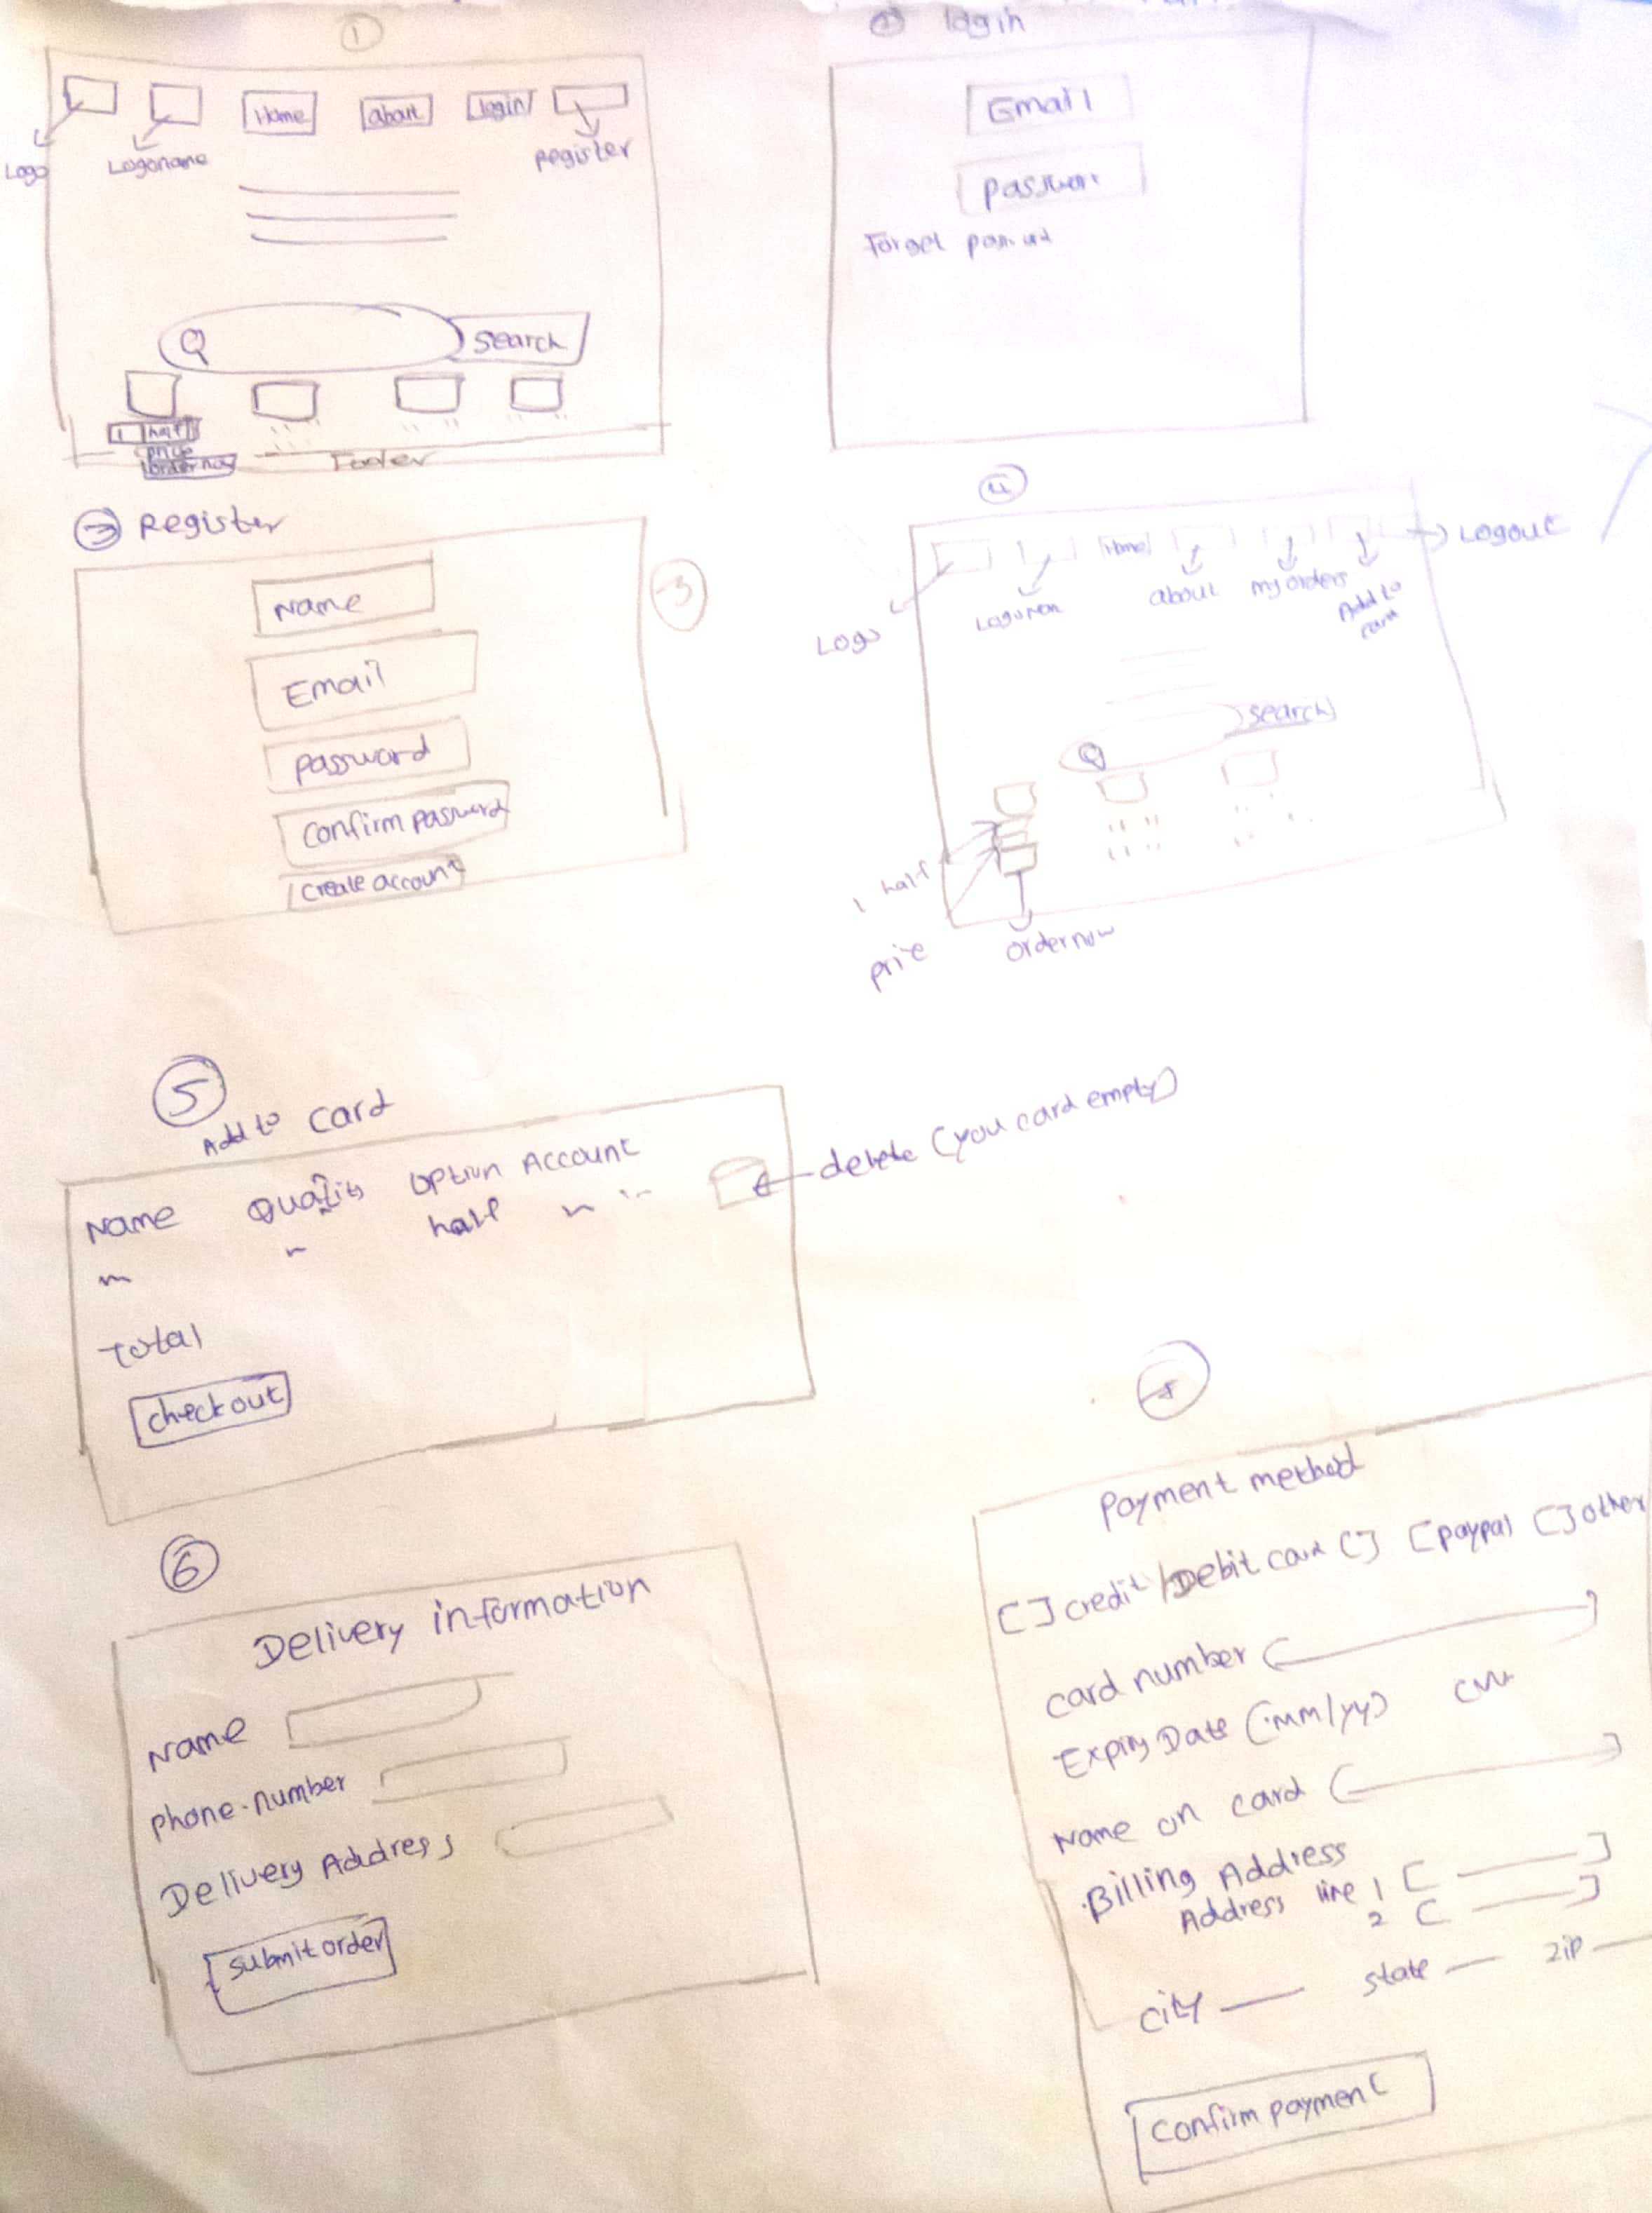 1
Home about login
Logo Logoname Register
Search
1 half
price
order now
Footer
2 login
Email
password
Forget
3 Register
3
Name
Email
password
Confirm password
Create account
4
Home
Logout
Logo about my orders Add to
Search
1 half
price
order now
5
Add to card
Name Option Account
half
delete (you card empty)
Total
checkout
6
Delivery information
Name
phone-number
Delivery Address
submit order
Payment method
[] credit / Debit card [] [paypal [] other
card number
Expiry Date (mm/yy) CVV
Name on card
Billing Address
Address line 1
2
city state zip
Confirm payment